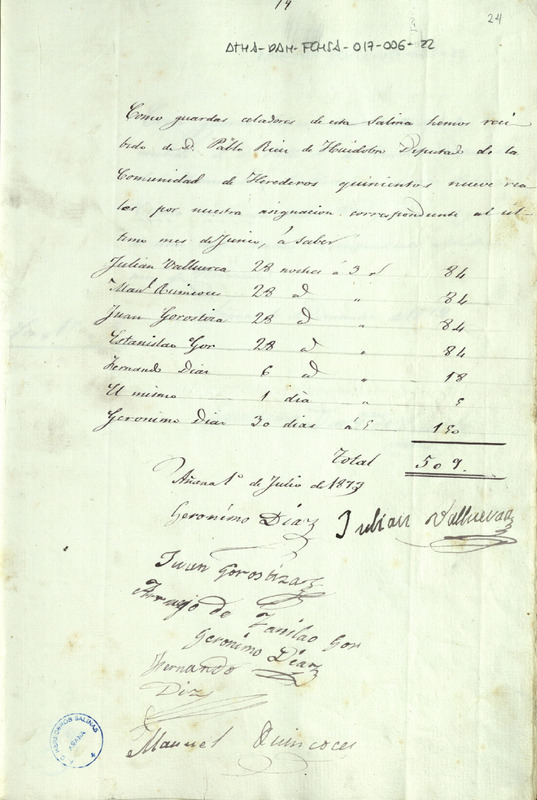 19
24
ATHA-DAH-FCHSA-017-006-22
Como guardas celadores de esta Salina hemos reci-
bido de D. Pablo Ruiz de Huidobro Diputado de la
Comunidad de Herederos quinientos nueve rea-
les por nuestra asignacion correspondiente al ul-
timo mes de Junio, á saber
Julian Valluerca 28 noches á 3 rs 84
Manl Quincoces 28 id " 84
Juan Gorostiza 28 id " 84
Estanislao Gor 28 id " 84
Fernando Diaz 6 id " 18
El mismo 1 dia " 5
Geronimo Diaz 30 dias á 5 150
Total 509.
Añana 1º de Julio de 1873
Geronimo Díaz Julian Valluerca
Juan Gorostiza
Arruejo de
Tanilao Gor
Geronimo Díaz
Fernando
Diz
Manuel Quincoces
HEREDEROS SALINAS
AÑANA